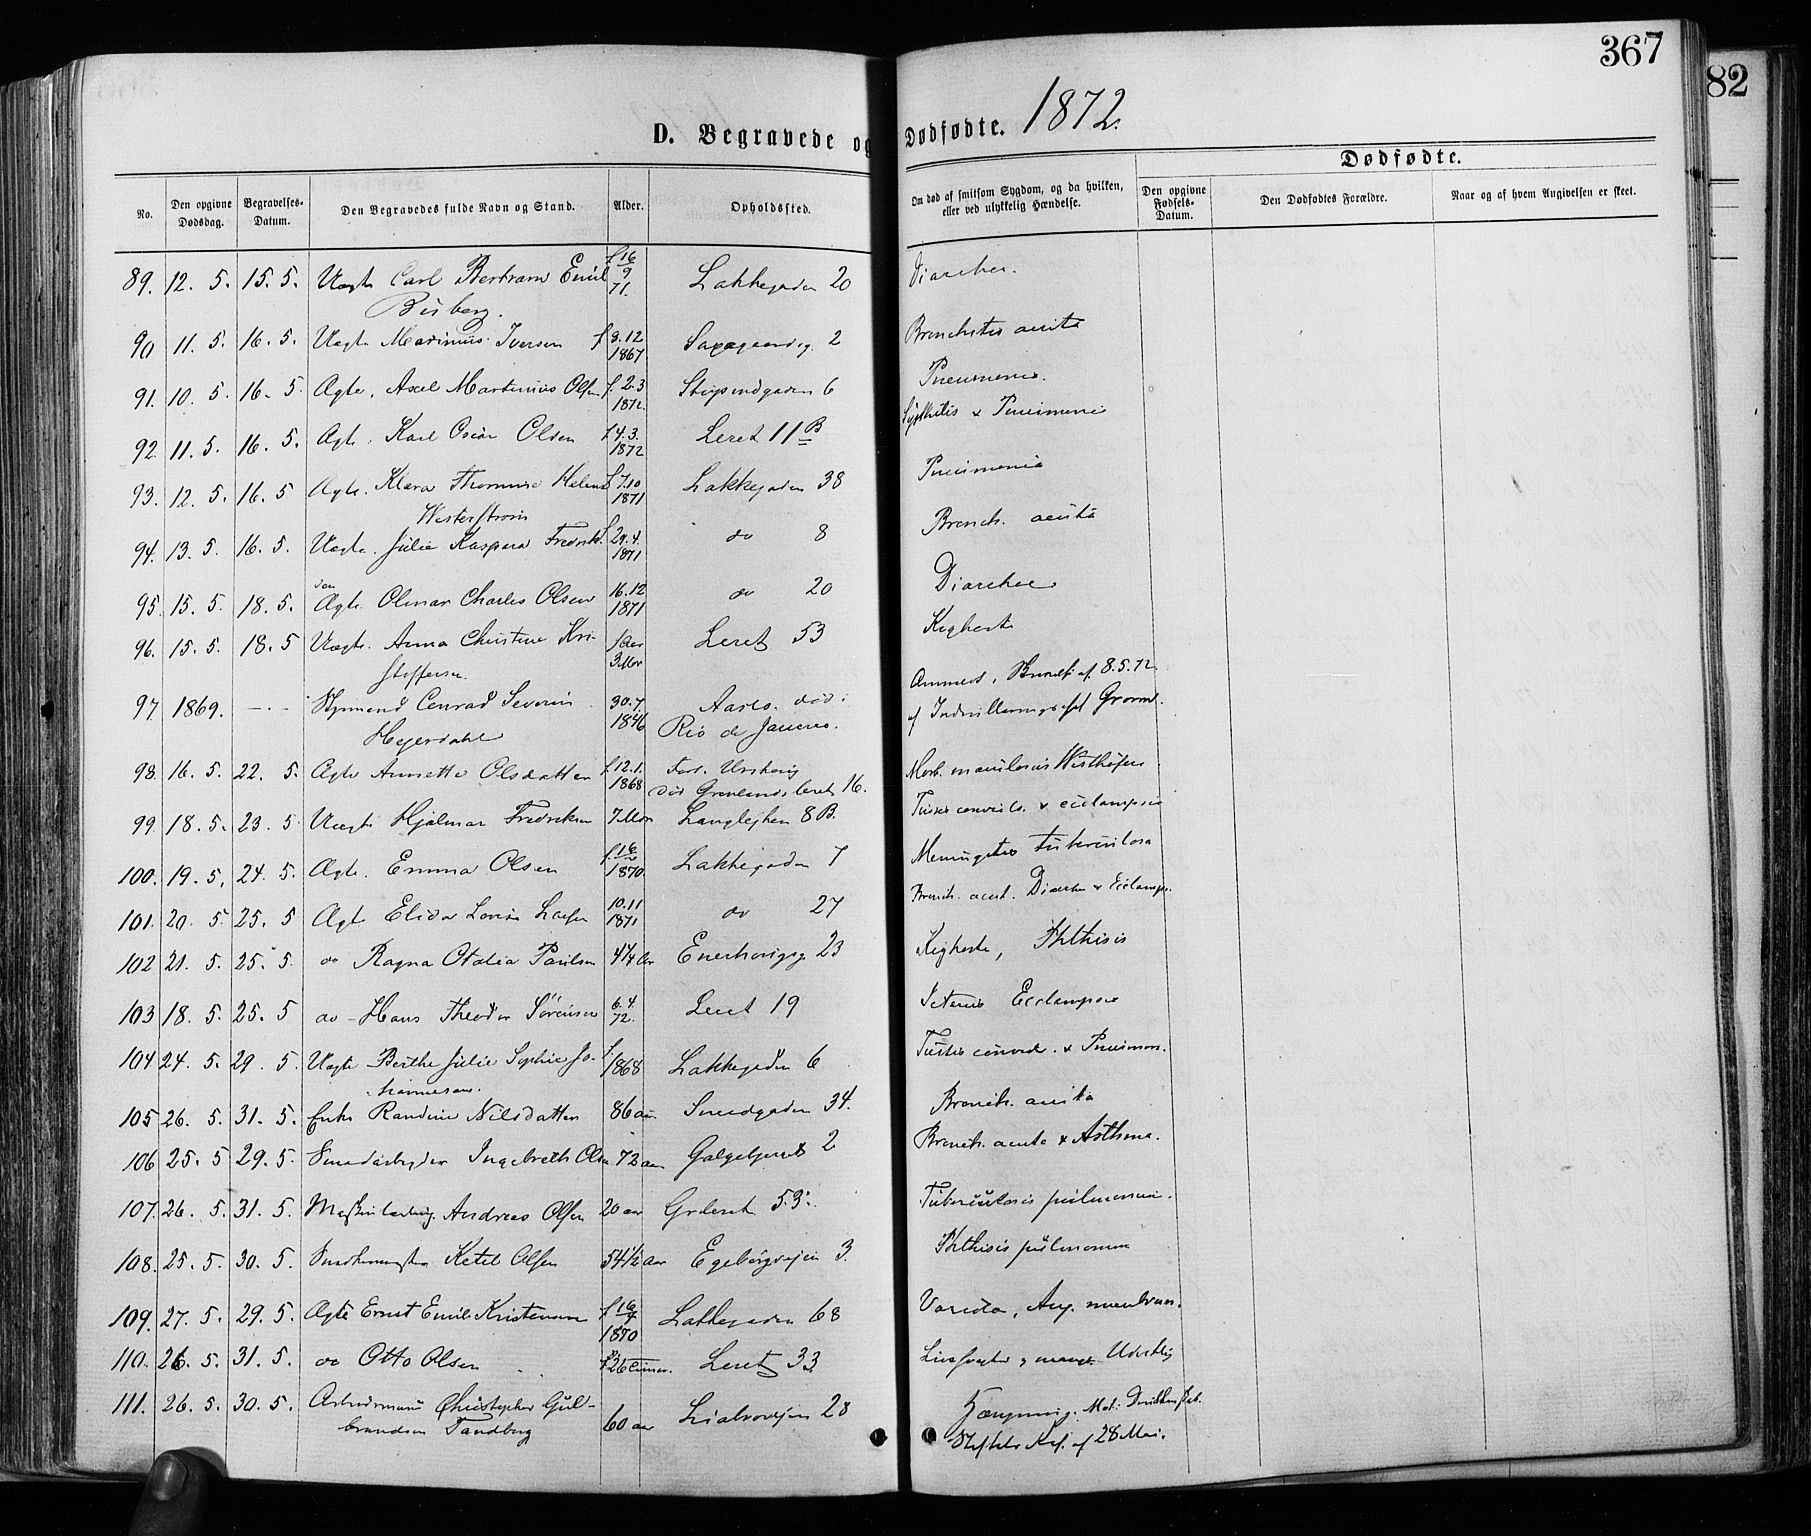 367
82
D. Begravede og Dødfødte. 1872.
Dødfødte.
No.
Den opgivne Dødsdag.
Begravelses-Datum.
Den Begravedes fulde Navn og Stand.
Alder.
Opholdssted.
Om død af smitsom Sygdom, og da hvilken, eller ved ulykkelig Hændelse.
Den opgivne Fødsels-Datum.
Den Dødfødtes Forældre.
Naar og af hvem Angivelsen er skeet.
89. 12. 5. 15. 5. Uægte Carl Bertram Emil f. 16/9 71. Lakkegaden 20 Diarrhee.
Bisberg.
90 11. 5. 16. 5. Uægte Marinius Iversen f 9.12 1867 Saxegaardsg. 2 Bronchitis acuta
91. 10. 5. 16. 5. Ægte. Axel Martinius Olsen f. 2.3 1872. Stupindgaden 6 Pneumonie.
92. 11. 5. 16. 5. Ægte. Karl Oscar Olsen f 4.3. 1872 Leret 11 B Syphilis & Pneumonie
93. 12. 5. 16. 5 Ægte. Klara Thomine Helene f 7.10 1871 Lakkegaden 38 Pneumonia
Westerstrøm
94. 13. 5. 16. 5. Uægte. Julie Kaspara Fredriks. f. 29.4. 1871 do 8 Bronch. acuta
95. 15. 5. 18. 5. Ægte. Olmar Charles Olsen 16.12 1871 do 20 Diarrhee
96. 15. 5. 18. 5 Uægte. Anna Christine Kri- 1 Aar 3 Mdr Leret 53 Kighoste
stoffersen
97 1869. - - - Styrmand Conrad Severin 30.7. 1846 død i Rio de Janeiro.
Hejerdahl
af 8.5.72.
98. 16. 5. 22. 5. Ægte Annette Olsdatter f. 12.1. 1868 død Grønlandsleret 16. Morb. maculosus Werlhofii
99. 18. 5. 23. 5 Uægte Hjalmar Fredriksen 7 Mdr Langlejken 8 B. Tussis convuls. & eclampsia
100. 19. 5. 24. 5. Ægte. Emma Olsen 1870 Lakkegaden 7 Meningitis tuberculosa
101. 20. 5 25. 5 Ægte Elida Lovise Larsen 10.11 1871 do 27 Bronch. acut. Diarrhe & Eclamps.
102 21. 5. 25. 5. do Ragna Otalia Paulsen 4 1/4 Aar Enerhougsg. 23 Kighoste, Phthisis
103 18. 5. 25. 5 do - Hans Theodor Sörensen 6.4. 72. Leret 19 Icterus Ecclampsia
104 24. 5. 29. 5. Uægte Berthe Julie Sophie Jo- f. 1868 Lakkegaden 6 Tussis convul. & Pneumon.
hannesen.
105 26. 5. 31. 5. Enke Randine Nilsdatter 86 aar Smedgaden 34. Bronch. acuta
106 25. 5 29. 5. Ingebreth Olsen 72 aar Galgebjerget 2 Bronch. acuta & Asthma.
107. 26. 5. 31. 5. Andreas Olsen 20 aar Grleret 53. Tuberculosis pulmonum.
108. 25. 5. 30. 5. Ketil Olsen 54 1/2 aar Egebergvejen 3. Phthisis pulmonum
109. 27. 5. 29. 5. Ægte Ernst Emil Kristensen 1870 Lakkegaden 68 Variola, Ang. membran.
110. 26. 5. 31. 5. do Otto Olsen Leret 33
111. 26. 5. 30. 5. Arbeidsmand Christopher Gul- 60 aar Liabrovejen 28 Hængning.
brandsen Tandberg
af 28 Mai.